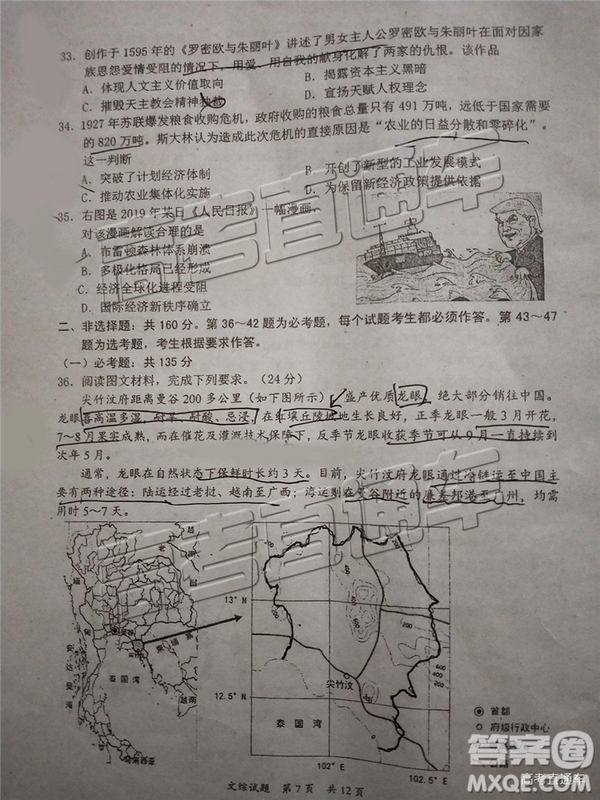 33. 创作于 1595 年的《罗密欧与朱丽叶》讲述了男女主人公罗密欧与朱丽叶在面对因家
族恩怨爱情受阻的情况下，用爱、用自我的献身化解了两家的仇恨。该作品
A. 体现人文主义价值取向 B. 揭露资本主义黑暗
C. 摧毁天主教会精神独裁 D. 宣扬天赋人权理念
34. 1927 年苏联爆发粮食收购危机，政府收购的粮食总量只有 491 万吨，远低于国家需要
的 820 万吨。斯大林认为造成此次危机的直接原因是“农业的日益分散和零碎化”。
这一判断
A. 突破了计划经济体制 B. 开创了新型的工业发展模式
C. 推动农业集体化实施 D. 为保留新经济政策提供依据
35. 右图是 2019 年某日《人民日报》一幅漫画，
对该漫画解读合理的是
A. 布雷顿森林体系崩溃
B. 多极化格局已经形成
C. 经济全球化进程受阻
D. 国际经济新秩序确立
二、非选择题：共 160 分。第 36～42 题为必考题，每个试题考生都必须作答。第 43～47
题为选考题，考生根据要求作答。
（一）必考题：共 135 分
36. 阅读图文材料，完成下列要求。（24 分）
尖竹汶府距离曼谷 200 多公里（如下图所示），盛产优质龙眼，绝大部分销往中国。
龙眼喜高温多湿，耐旱、耐酸、忌浸，在 填丘陵 地生长良好，正季龙眼一般 3 月开花，
7～8 月果实成熟，而在催花及灌溉技术保障下，反季节龙眼收获季节可从 9 月一直持续到
次年 5 月。
通常，龙眼在自然状态下保鲜时长约 3 天。目前，尖竹汶府龙眼通过冷链运至中国主
要有两种途径：陆运经过老挝、越南至广西；海运则在曼谷附近的廉差邦港至广州，均需
用时 5～7 天。
泰国湾
马来西亚
安达曼海
13° N
12.5° N
尖竹汶
泰国湾
102° E
102.5° E
首都
府级行政中心
文综试题 第 7 页 共 12 页
高考直通车
答案卷
MXQE.COM
高考直通车